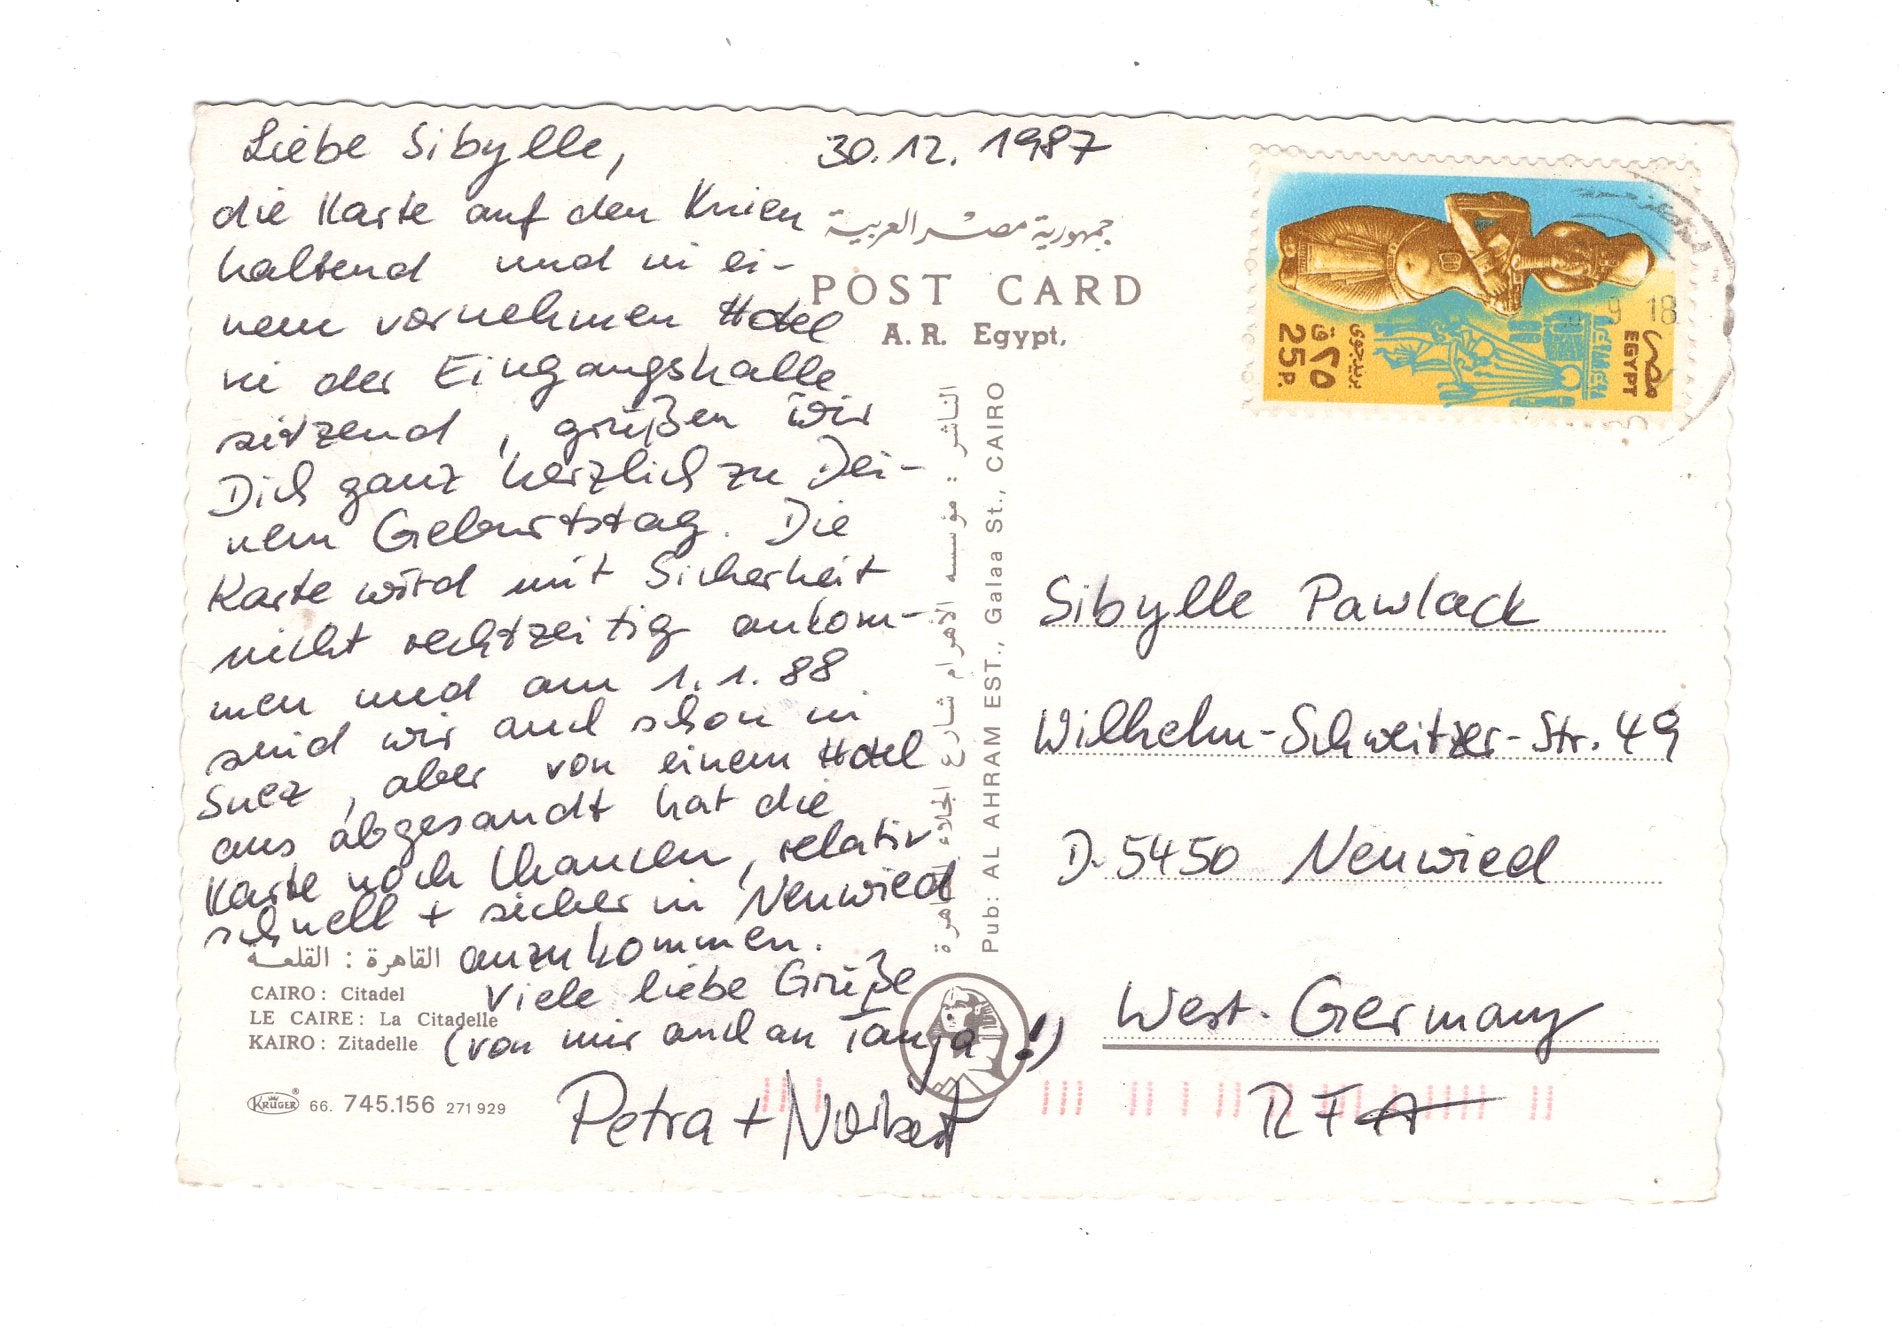 Liebe Sibylle,
30.12.1987
die Karte auf den Knien
haltend und in ei-
nem vornehmen Hotel
in der Eingangshalle
sitzend, grüßen wir
Dich ganz herzlich zu Dei-
nem Geburtstag. Die
Karte wird mit Sicherheit
nicht rechtzeitig ankom-
men und am 1.1.88
sind wir auch schon in
Suez, aber von einem Hotel
aus abgesandt hat die
Karte noch Chancen, relativ
schnell + sicher in Neuwied
anzukommen.
Viele liebe Grüße
(von mir auch an Tanja!)
Petra + Norbert
القاهرة : القلعة
CAIRO: Citadel
LE CAIRE: La Citadelle
KAIRO: Zitadelle
KRÜGER® 66. 745.156 271929
جمهورية مصر العربية
POST CARD
A. R. Egypt.
الناشر : مؤسسة الاهرام شارع الجلاء القاهرة
Pub: AL AHRAM EST., Galaa St., CAIRO
مصر
EGYPT
بريد جوى
٢٥ ق
25 P.
9 18
Sibylle Pawlack
Wilhelm-Schweitzer-Str. 49
D-5450 Neuwied
West-Germany
RFA